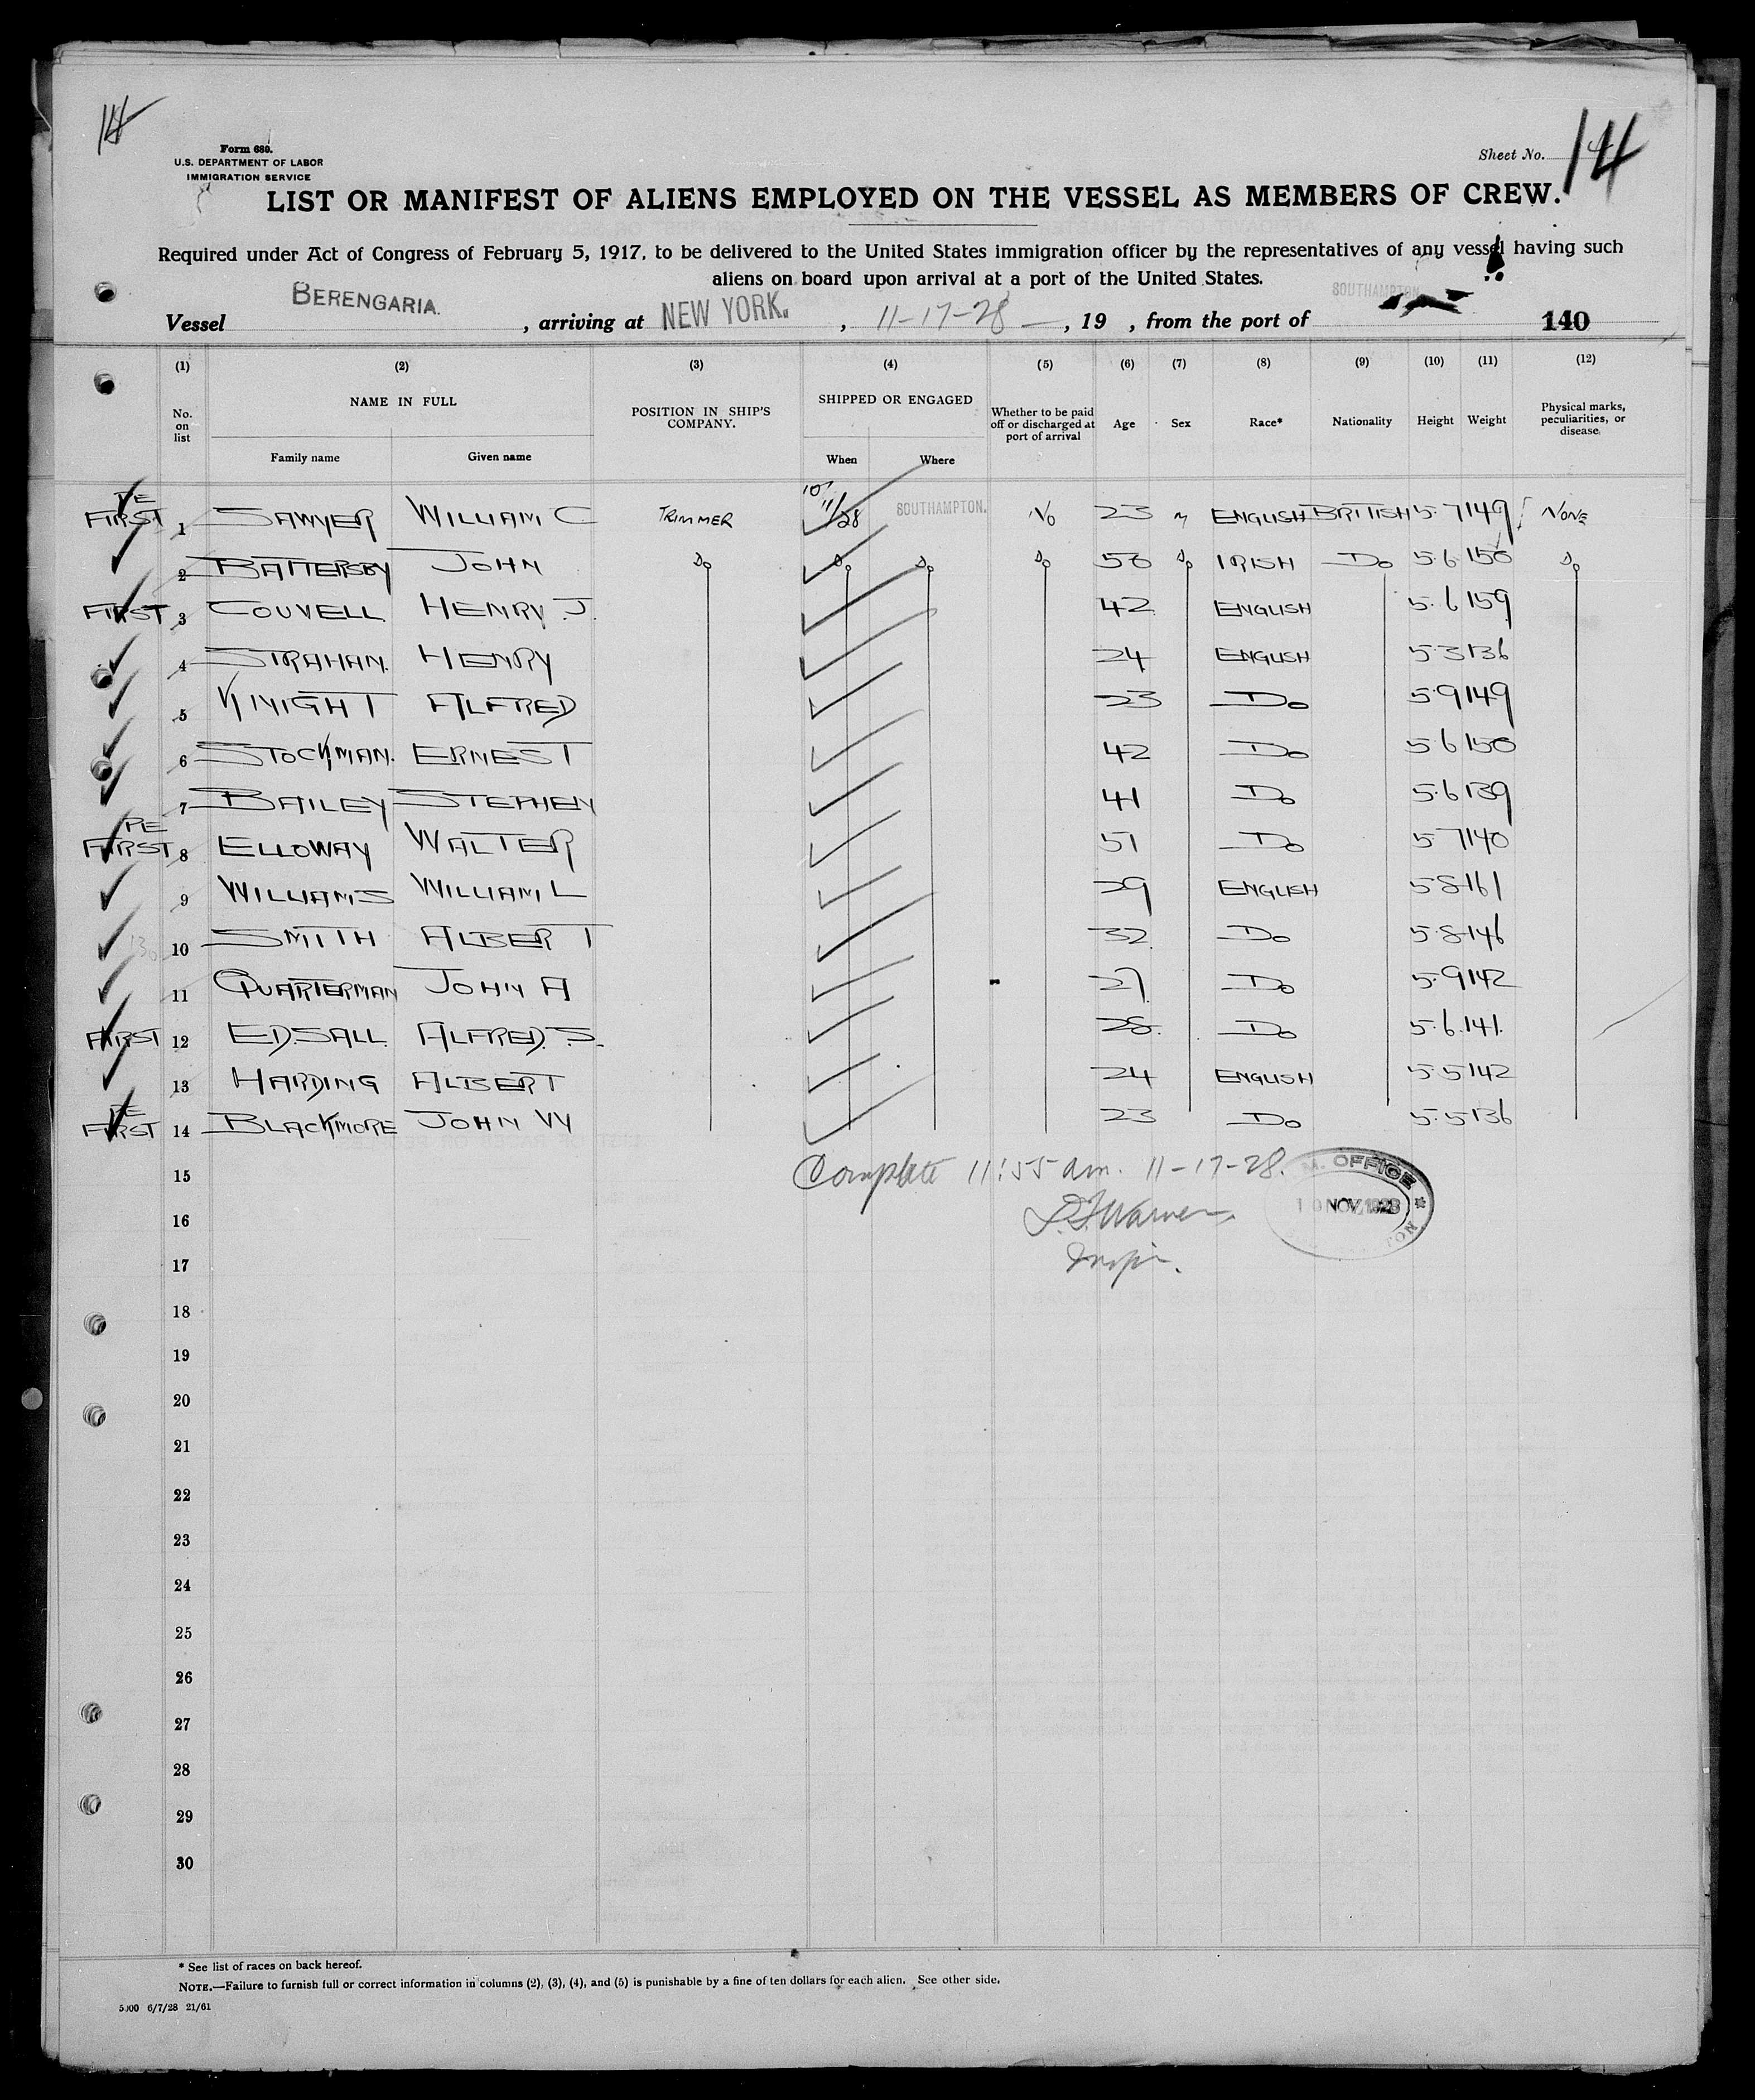 14
Form 680.
U.S. DEPARTMENT OF LABOR
IMMIGRATION SERVICE
Sheet No. 14
LIST OR MANIFEST OF ALIENS EMPLOYED ON THE VESSEL AS MEMBERS OF CREW.
Required under Act of Congress of February 5, 1917, to be delivered to the United States immigration officer by the representatives of any vessel having such
aliens on board upon arrival at a port of the United States.
Vessel BERENGARIA, arriving at NEW YORK., 11-17-28, 19 , from the port of SOUTHAMPTON 140
(1) (2) (3) (4) (5) (6) (7) (8) (9) (10) (11) (12)
No. on list NAME IN FULL POSITION IN SHIP'S COMPANY. SHIPPED OR ENGAGED Whether to be paid off or discharged at port of arrival Age Sex Race* Nationality Height Weight Physical marks, peculiarities, or disease
Family name Given name When Where
RE FIRST 1 SAWYER WILLIAM C TRIMMER 10/11/28 SOUTHAMPTON. NO 23 M ENGLISH BRITISH 5.7 149 NONE
2 BATTERSBY JOHN Do Do Do Do 50 Do IRISH Do 5.6 150 Do
FIRST 3 COUVELL HENRY J. 42 ENGLISH 5.6 159
4 STRAHAN. HENRY 24 ENGLISH 5.3 136
5 KNIGHT ALFRED 23 Do 5.9 149
6 STOCKMAN. ERNEST 42 Do 5.6 150
7 BAILEY STEPHEN 41 Do 5.6 139
RE FIRST 8 ELLOWAY WALTER 51 Do 5 7 140
9 WILLIAMS WILLIAM L 29 ENGLISH 5.8 161
10 SMITH ALBERT 32 Do 5.8 146
11 QUARTERMAN JOHN A 27 Do 5.9 142
FIRST 12 EDSALL ALFRED. S. 28 Do 5.6.141.
13 HARDING ALBERT 24 ENGLISH 5.5 142
RE FIRST 14 BLACKMORE JOHN W 23 Do 5.5 136
15 Complete 11:55 am. 11-17-28.
M. OFFICE
NOV. 1928
16 Warner
17 Inspr.
18
19
20
21
22
23
24
25
26
27
28
29
30
* See list of races on back hereof.
NOTE.—Failure to furnish full or correct information in columns (2), (3), (4), and (5) is punishable by a fine of ten dollars for each alien. See other side.
5000 6/7/28 21/61